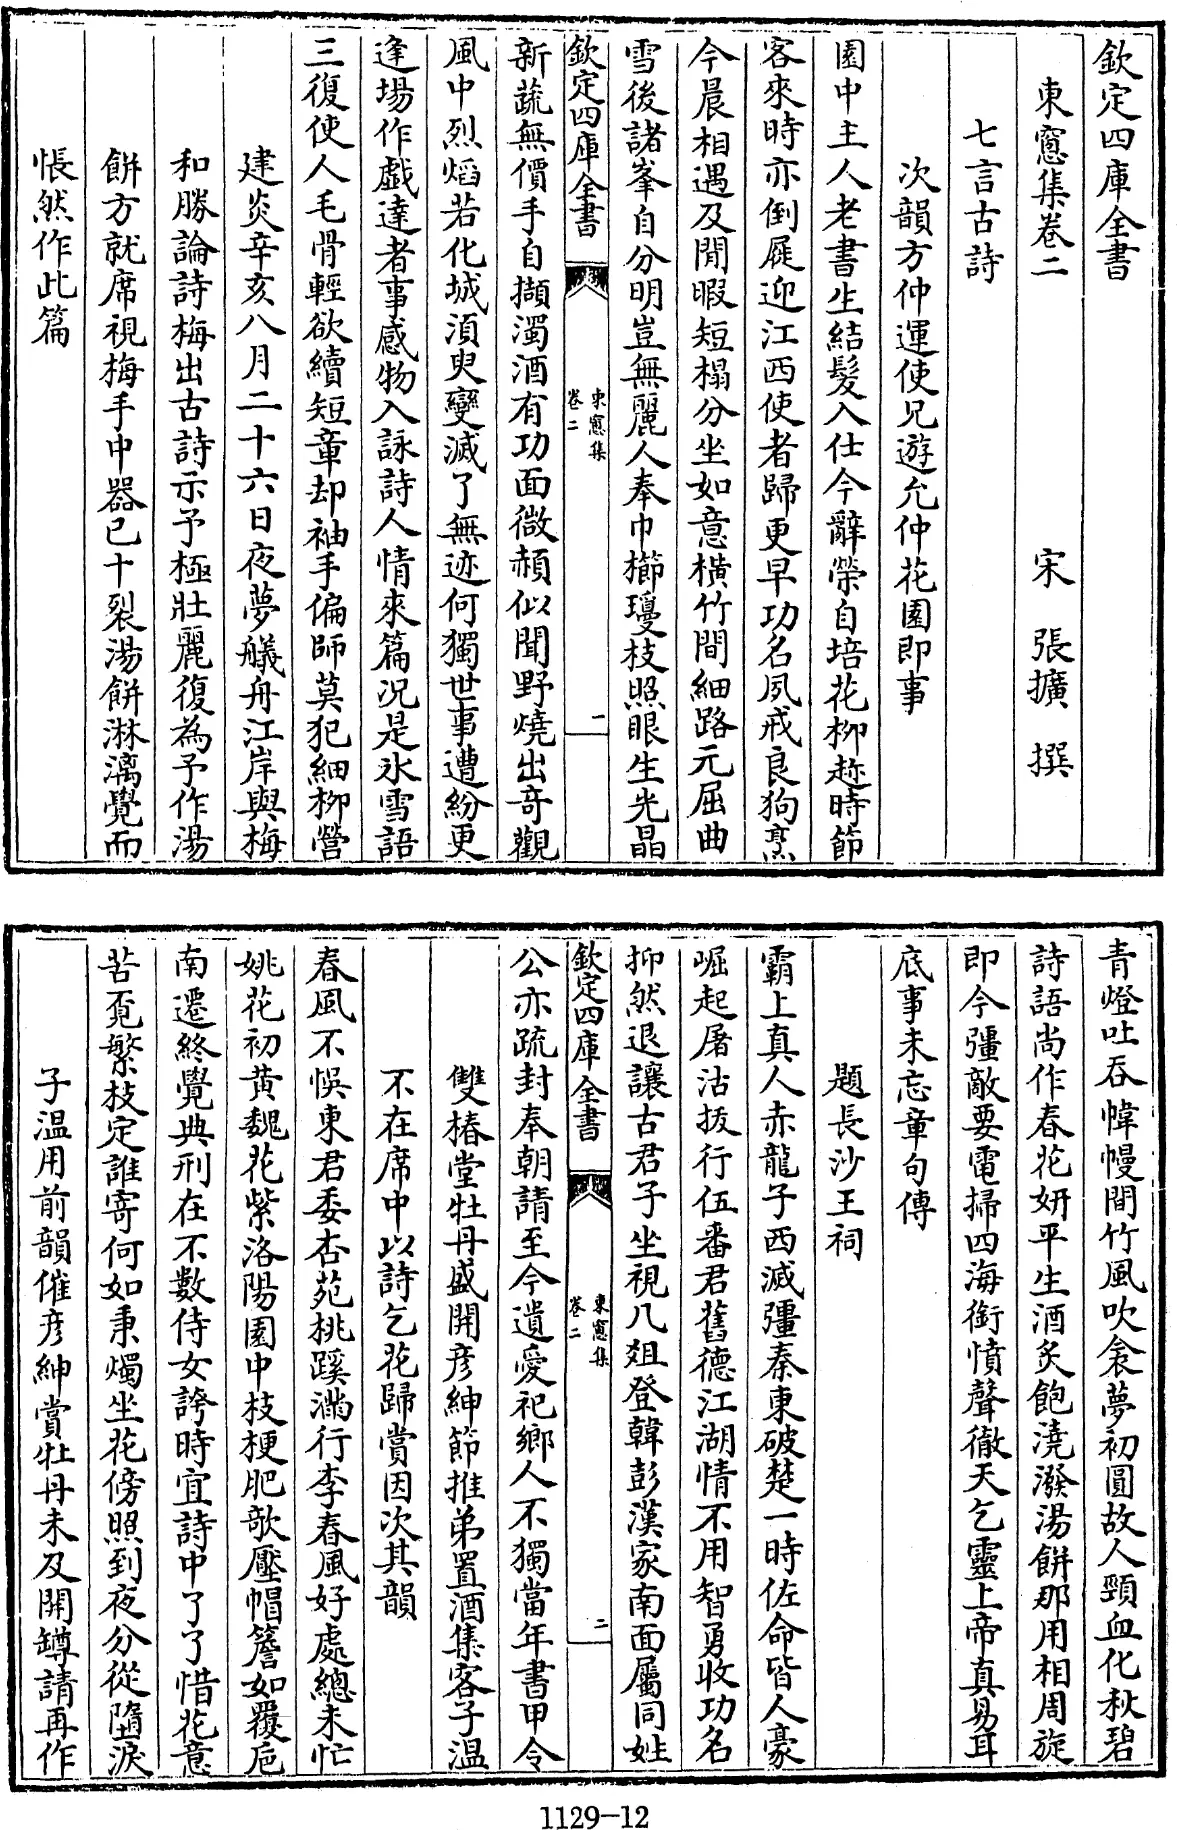 欽定四庫全書
東窻集卷二
宋　張擴　撰
七言古詩
次韻方仲運使兄遊允仲花園即事
園中主人老書生結髮入仕今辭榮自培花柳趂時節
客來時亦倒屣迎江西使者歸更早功名夙戒良狗烹
今晨相遇及閒暇短榻分坐如意橫竹間細路元屈曲
雪後諸峯自分明豈無麗人奉巾櫛瓊枝照眼生光晶
欽定四庫全書
東窻集
卷二
一
新蔬無價手自擷濁酒有功面微赬似聞野燒出奇觀
風中烈熖若化城湏臾變滅了無迹何獨世事遭紛更
逢場作戲達者事感物入詠詩人情來篇况是氷雪語
三復使人毛骨輕欲續短章却袖手偏師莫犯細柳營
建炎辛亥八月二十六日夜夢艤舟江岸與梅
和勝論詩梅出古詩示予極壯麗復為予作湯
餅方就席視梅手中器已十裂湯餅淋漓覺而
悵然作此篇
青燈吐吞幃幔間竹風吹衾夢初圓故人頸血化秋碧
詩語尚作春花妍平生酒炙飽澆潑湯餅那用相周旋
即今彊敵要電掃四海銜憤聲徹天乞靈上帝真易耳
底事未忘章句傳
題長沙王祠
霸上真人赤龍子西滅彊秦東破楚一時佐命皆人豪
崛起屠沽拔行伍番君舊德江湖情不用智勇收功名
抑然退讓古君子坐視几俎登韓彭漢家南面屬同姓
欽定四庫全書
東窻集
卷二
二
公亦疏封奉朝請至今遺愛祀鄉人不獨當年書甲令
雙椿堂牡丹盛開彦紳節推弟置酒集客子溫
不在席中以詩乞花歸賞因次其韻
春風不悞東君委杏苑桃蹊滿行李春風好處總未忙
姚花初黃魏花紫洛陽園中枝梗肥欹壓帽簷如覆巵
南遷終覺典刑在不數侍女誇時宜詩中了了惜花意
苦覔繁枝定誰寄何如秉燭坐花傍照到夜分從墮淚
子溫用前韻催彦紳賞牡丹未及開罇請再作
1129-12